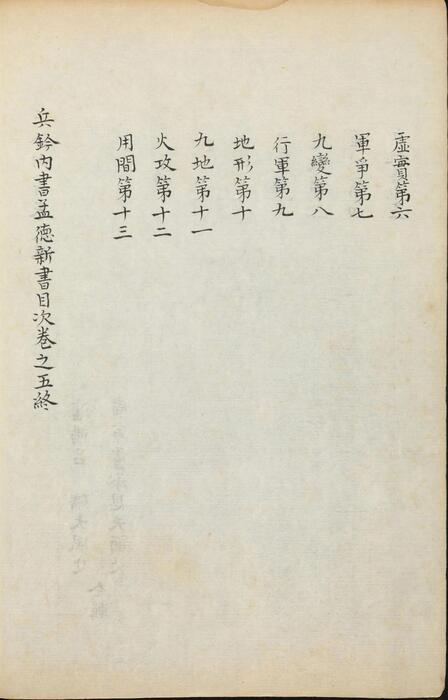 虛實第六
軍爭第七
九變第八
行軍第九
地形第十
九地第十一
火攻第十二
用間第十三
兵鈐內書孟德新書目次卷之五終